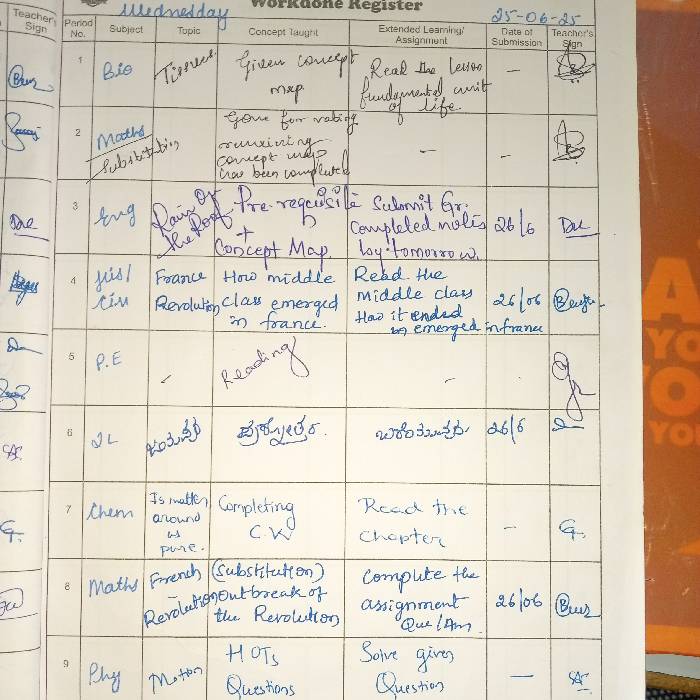 Workdone Register
Wednesday
25-06-25
Teacher's Sign
Period No.
Subject
Topic
Concept Taught
Extended Learning/ Assignment
Date of Submission
Teacher's Sign
1
Bio
Given concept
map
Read the lesson
fundamental unit
of life.
—
2
Maths
Substitution
Gone for
concept map
has been completed
—
—
3
Eng
Rain On
the Roof
Pre-requisite
+
Concept Map.
Submit Gr.
Completed notes
by tomorrow.
26/6
4
His/
Civ
France
Revolution
How middle
class emerged
in france.
Read the
Middle class
How it ended
emerged in france
26/06
5
P.E
-
Reading
-
6
2L
26/6
7
Chem
Is matter
around
us
pure.
Completing
C.W
Read the
Chapter
—
G.
8
Maths
French
Revolution
(Substitution)
outbreak of
the Revolution
Complete the
assignment
Que/Ans.
26/06
9
Phy
Motion
HOTs
Questions
Solve given
Question
—
A
YO
YO
YOU